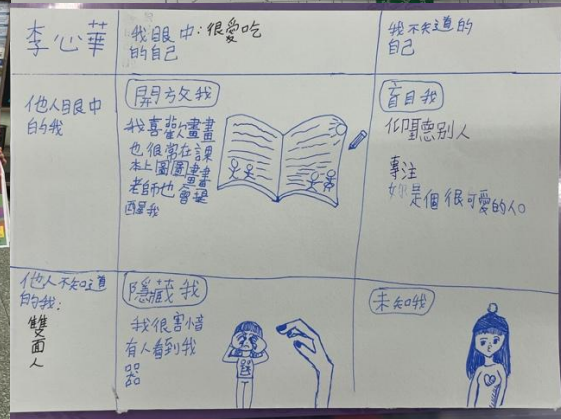 李心華
我眼中:很愛吃
的自己
我不知道的
自己
他人眼中
的我
開放我
我喜歡畫畫
也很常在課
本上圖圖畫畫
老師也會提
醒我
盲目我
仰聽別人
專注
妳是個很可愛的人。
他人不知道
的我:
雙
面
人
隱藏我
我很害怕
有人看到我
哭
未知我